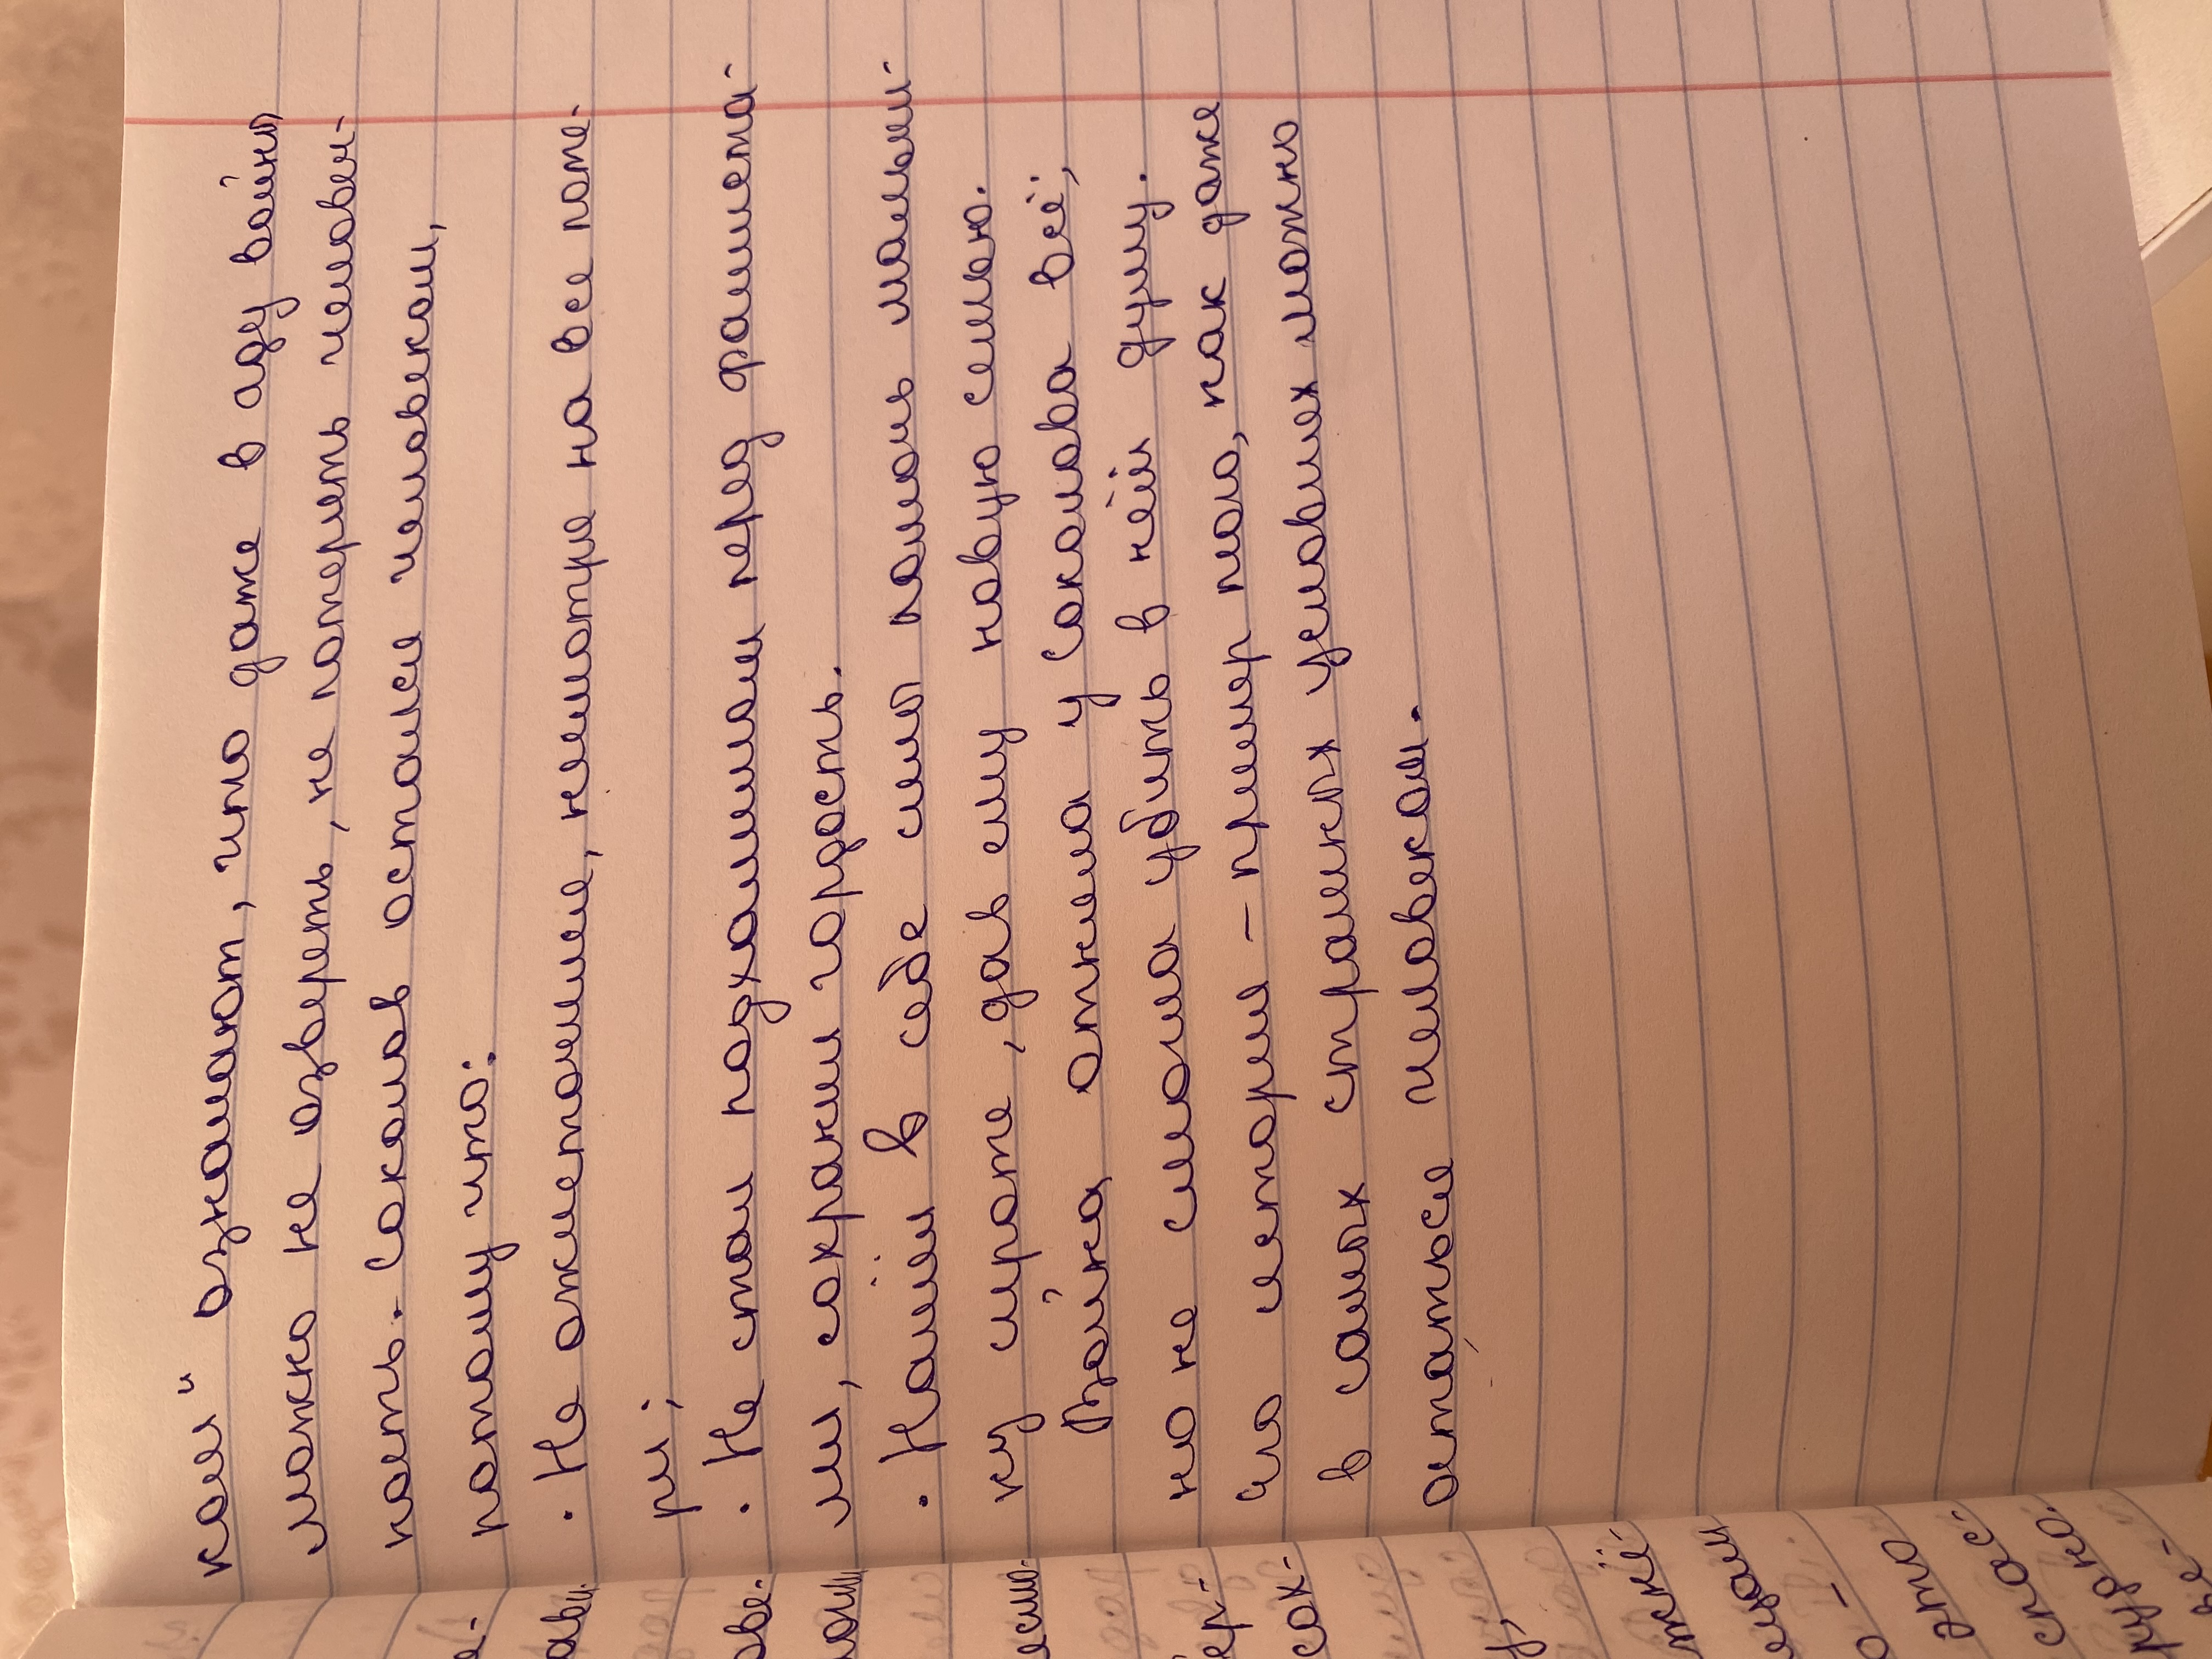 ком" означают, что даже в аду войны
можно не озвереть, не потерять человеч-
ность. Соколов остался человеком,
потому что:
· Не ожесточился, несмотря на все поте-
ри;
· Не стал подхалимом перед фашиста-
ми, сохранил гордость.
· Нашёл в себе силы помочь мальчи-
ку сироте, дав ему новую семью.
Война отняла у Соколова всё,
но не смогла убить в нём душу.
Его история – пример того, как даже
в самых страшных условиях можно
остаться человеком.